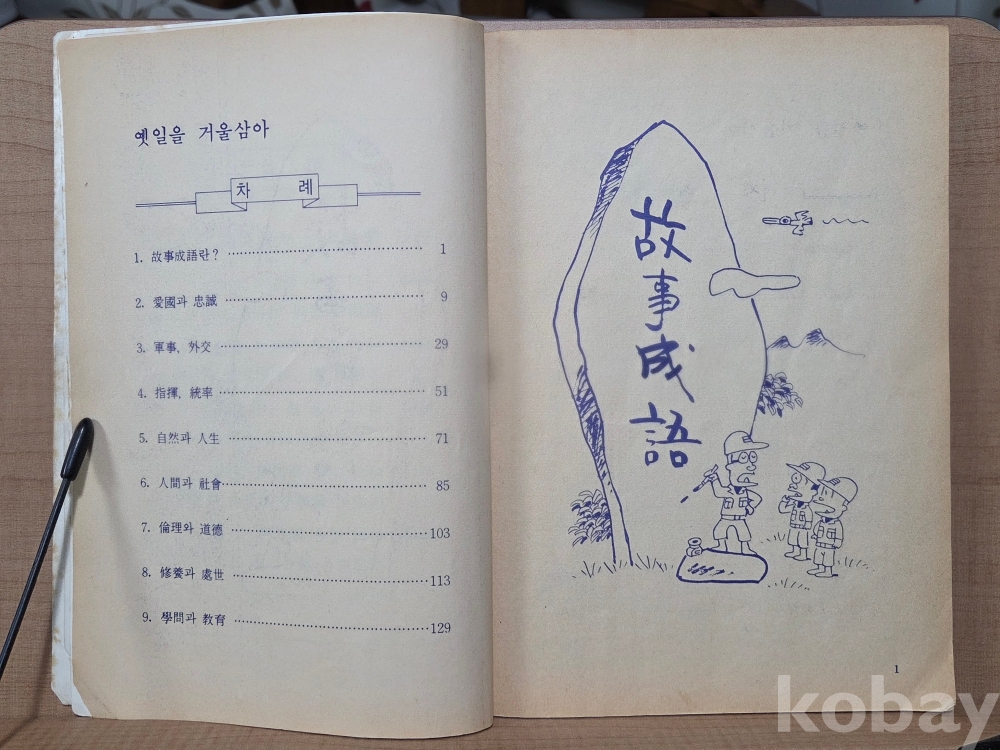 옛일을 거울삼아
차 례
1. 故事成語란? ………………………………… 1
2. 愛國과 忠誠 ………………………………… 9
3. 軍事, 外交 ………………………………… 29
4. 指揮, 統率 ………………………………… 51
5. 自然과 人生 ………………………………… 71
6. 人間과 社會 ………………………………… 85
7. 倫理와 道德 ………………………………… 103
8. 修養과 處世 ………………………………… 113
9. 學問과 教育 ………………………………… 129
故事成語
1
kobay